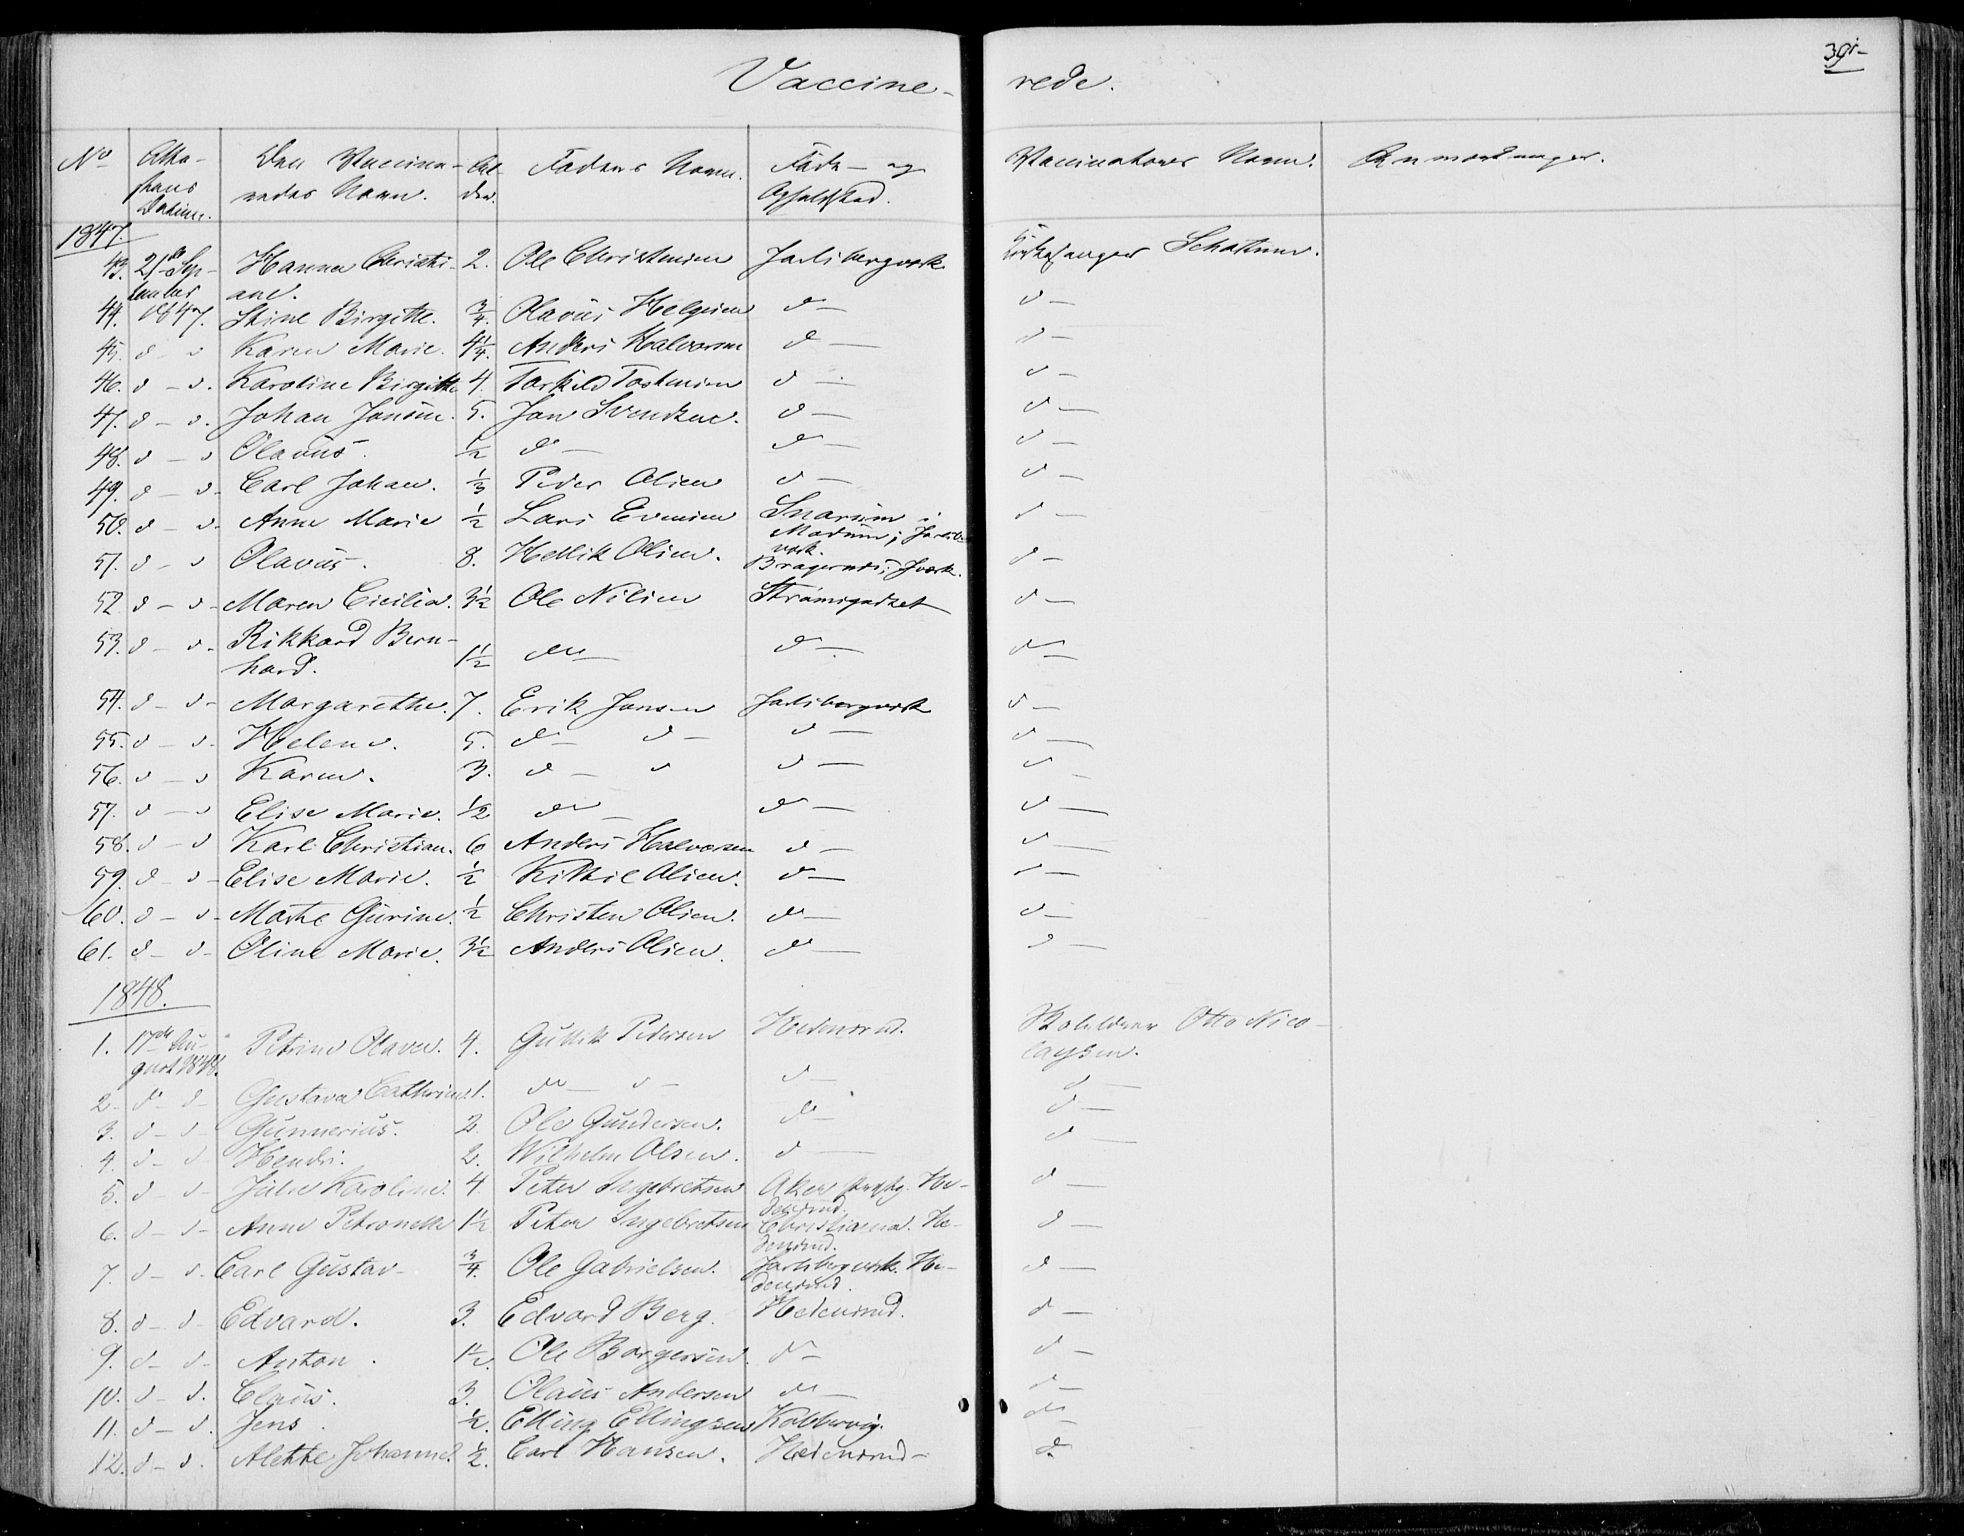 Vaccine- rede.
39i-
No Atte- Den Vaccine- Al- Faderens Navn. Føde- og Vaccinatorens Navn. Anmærkninger.
stens redes Navn. der. Opholdssted.
Datum.
1847.
43. 21de Sep- Hanna Christi- 2. Ole Christensen Jarlsbergværk Kirkesanger Schatum.
tember ane.
44. 1847. Stine Birgitte. 3/4. Olaus Helgesen d - d -
45. d - d Karen Marie. 4 1/4. Anders Halvorsen d - d -
46. d - d. Karoline Birgitte 4. Torkild Tostensen d - d -
47. d - d. Johan Jonsen. 5. Jon Svendsen. d - d -
48. d - d Olavus. 1/2 d - d - d -
49. d - d - Carl Johan. 1/3 Peder Olsen d - d -
50. d - d. Anne Marie 1/2 Lars Evensen Snarum i d -
Modum; Jarlsb.
værk.
51. d - d Olavus. 8. Hellik Olsen. Bragernes; Jværk. d -
52 d - d - Maren Cicilia. 3 1/2 Ole Nilsen Strømsgodset d -
53. d - d - Rikkard Bern- 1 1/2 do - d - d -
hard.
54. d - d - Margarethe. 7. Erik Jonsen Jarlsbergværk d -
55. d - d. Helene. 5. d - d - d - d -
56. d - d Karen. 3. d - d d - d -
57. d - d Elise Marie. 1/2 do - d - d -
58. d - d Karl Christian. 6 Anders Halvorsen d - d -
59. d - d - Elise Marie. 1/2 Kittil Olsen. d - d -
60. d - d - Marthe Gurine. 1/2 Christen Olsen. d - d -
61. d - d - Oline Marie. 3 1/2 Anders Olsen. d - d -
1848.
1. 17de Au- Petrine Olava. 4. Gullik Pedersen Hedensrud. Skolelærer Otto Nico-
gust 1848. laysen.
2. d - d - Gustava Cathrine. 1. do - d - d - d -
3. d - d - Gunnerius. 2. Ole Gundersen. d - d -
4. d - d Hendri. 2. Wilhelm Olsen. d - d -
5. d - d - Julie Karoline. 4. Peter Ingebretsen Aker Præstg. He- d -
densrud.
6. d - d - Anne Petronelle 1 1/2 Peter Ingebretsen Christiania. He- d -
densrud.
7. d - d. Carl Gustav - 3/4. Ole Gabrielsen. Jarlsbergværk. He- d -
densrud.
8. d - d - Edvard. 3. Edvard Berg. Hedensrud. d -
9. d - d - Anton. 1 1/2. Ole Borgersen. d - d -
10. d - d. Claus. 3. Olaus Andersen do - d -
11. d - d. Jens. 1/2. Elling Ellingsen Kobbervig. do -
12. d - d. Alette Johanne. 1/2. Carl Hansen. Hedensrud - d -